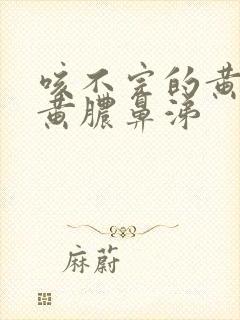 咳不完的黄
黄膿鼻涕
麻蔚